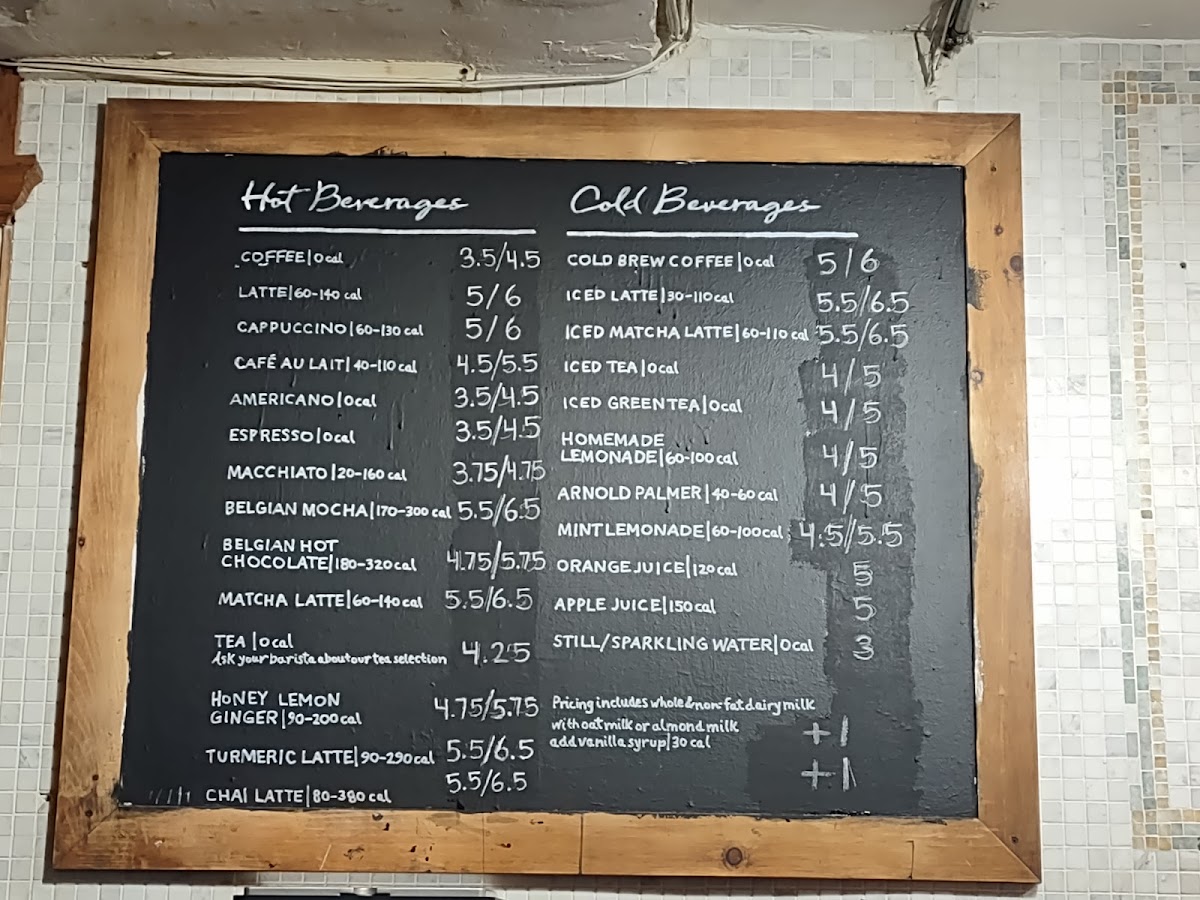 Hot Beverages
COFFEE|0 cal 3.5/4.5
LATTE|60-140 cal 5/6
CAPPUCCINO|60-130 cal 5/6
CAFÉ AU LAIT|40-110 cal 4.5/5.5
AMERICANO|0 cal 3.5/4.5
ESPRESSO|0 cal 3.5/4.5
MACCHIATO|20-160 cal 3.75/4.75
BELGIAN MOCHA|170-300 cal 5.5/6.5
BELGIAN HOT
CHOCOLATE|180-320 cal 4.75/5.75
MATCHA LATTE|60-140 cal 5.5/6.5
TEA|0 cal 4.25
Ask your barista about our tea selection
HONEY LEMON
GINGER|90-200 cal 4.75/5.75
TURMERIC LATTE|90-290 cal 5.5/6.5
CHAI LATTE|80-380 cal 5.5/6.5
Cold Beverages
COLD BREW COFFEE|0 cal 5/6
ICED LATTE|30-110 cal 5.5/6.5
ICED MATCHA LATTE|60-110 cal 5.5/6.5
ICED TEA|0 cal 4/5
ICED GREEN TEA|0 cal 4/5
HOMEMADE
LEMONADE|60-100 cal 4/5
ARNOLD PALMER|40-60 cal 4/5
MINT LEMONADE|60-100 cal 4.5/5.5
ORANGE JUICE|120 cal 5
APPLE JUICE|150 cal 5
STILL/SPARKLING WATER|0 cal 3
Pricing includes whole & non-fat dairy milk
with oat milk or almond milk +1
add vanilla syrup|30 cal +1